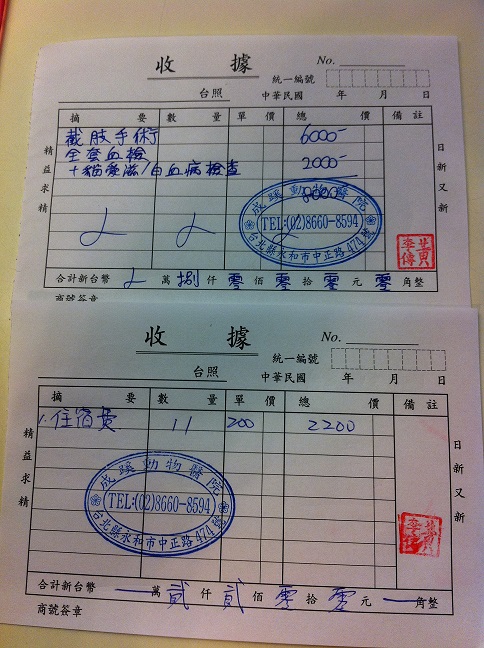 收 據 No.
統一編號
台照 中華民國 年 月 日
摘 要 數 量 單 價 總 價 備 註
截肢手術 6000-
全套血檢 2000-
+貓愛滋/白血病檢查
8000
精益求精
日新又新
成蹊動物醫院
TEL:(02)8660-8594
台北縣永和市中正路474號
合計新台幣 萬 捌 仟 零 佰 零 拾 零 元 零 角整
商號簽章
收 據 No.
統一編號
台照 中華民國 年 月 日
摘 要 數 量 單 價 總 價 備 註
1.住宿費 11 200 2200
精益求精
日新又新
成蹊動物醫院
TEL:(02)8660-8594
台北縣永和市中正路474號
合計新台幣 萬 貳 仟 貳 佰 零 拾 零 元 角整
商號簽章